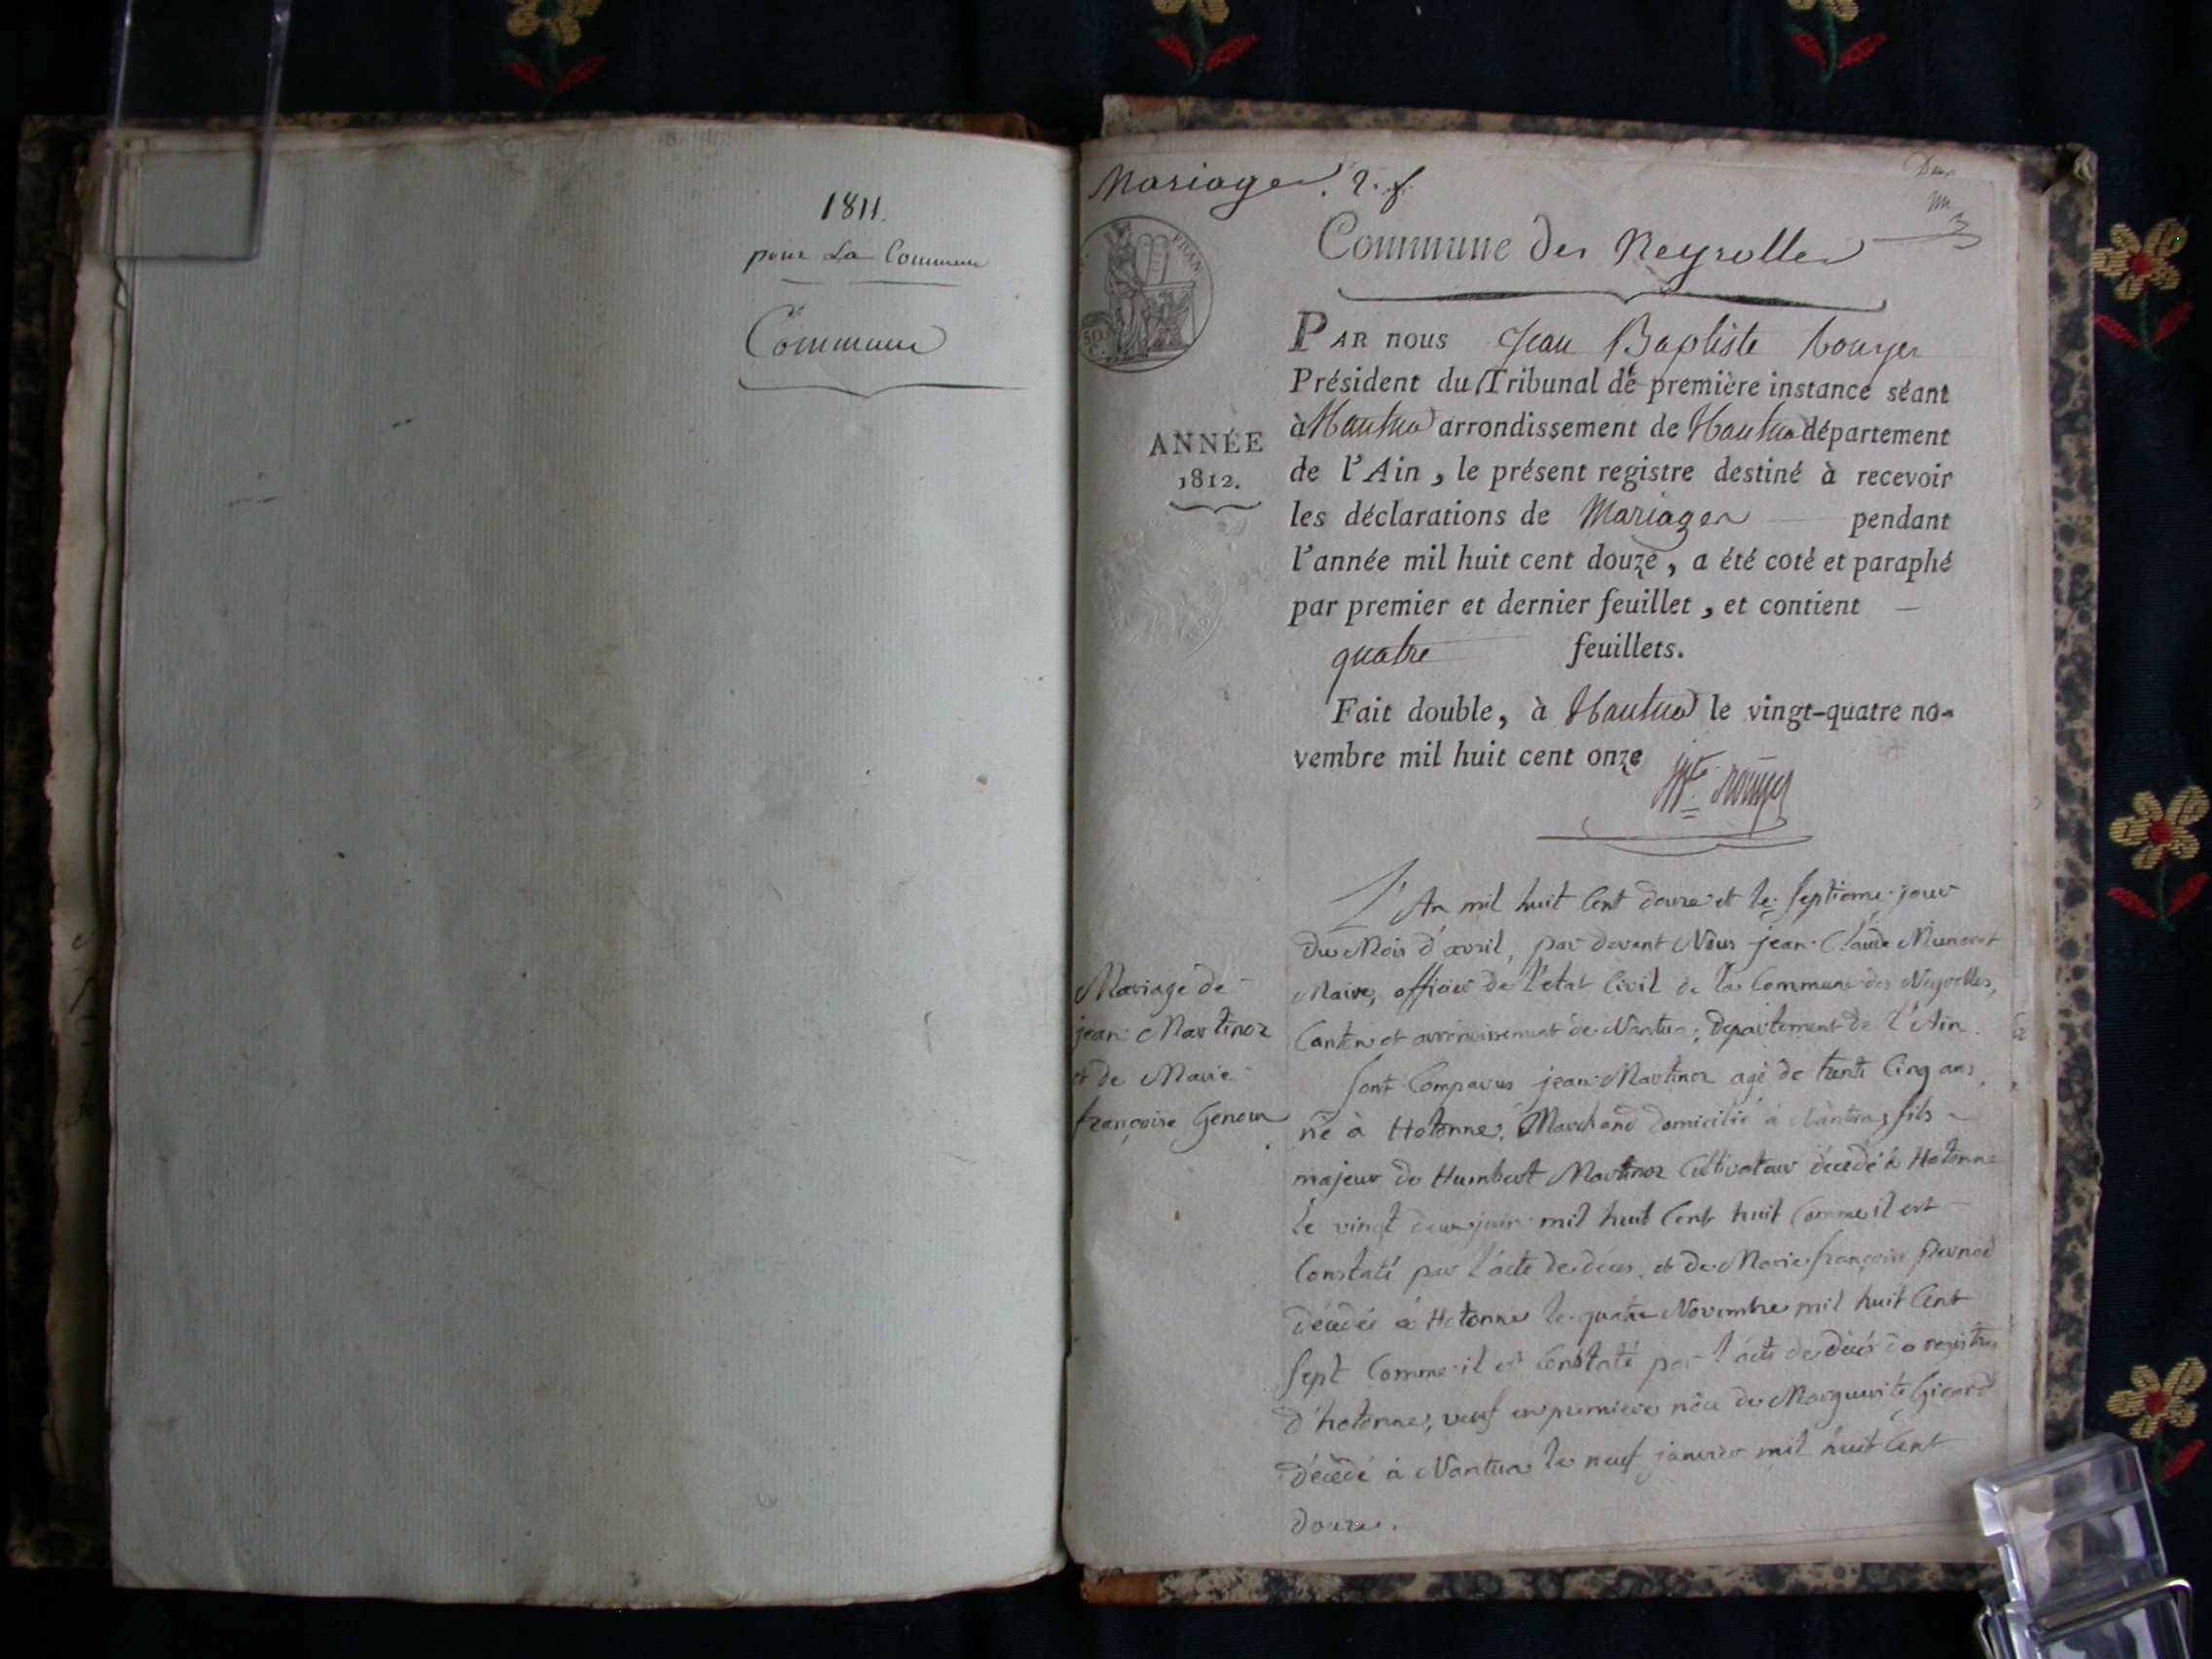 1811.
pour La Commune
Commune
Mariages. 2. f.
Deux
un
Commune des Neyrolles
FRAN
50
C.
PAR nous Jean Baptiste Rouyer
Président du Tribunal de première instance séant
à Nantua arrondissement de Nantua département
ANNÉE
1812.
de l'Ain, le présent registre destiné à recevoir
les déclarations de Mariages pendant
l'année mil huit cent douze, a été coté et paraphé
par premier et dernier feuillet, et contient —
quatre feuillets.
Fait double, à Nantua le vingt-quatre no-
vembre mil huit cent onze
L'An mil huit Cent douze et le septieme jour
du Mois d'avril, par devant Nous jean Claude
Maire, officier de l'état Civil de la Commune des Neyrolles,
Canton et arrondissement de Nantua, departement de l'Ain.
Mariage de
jean Martinoz
et de Marie
françoise Genoux
Sont Comparus jean Martinoz agé de trente Cinq ans,
né à Hotonne, Marchand domicilié à Nantua, fils
majeur de Humbert Martinoz Cultivateur décedé à Hotonne
le vingt deux juin mil huit Cent huit Comme il est
Constaté par l'acte de deces, et de Marie françoise
décedée à Hotonne le quatre Novembre mil huit Cent
Sept Comme il est Constaté par l'acte de décés registres
d'hotonne, veuf en premiere nôce de Marguerite Girard
décédé à Nantua le neuf janvier mil huit Cent
douze.